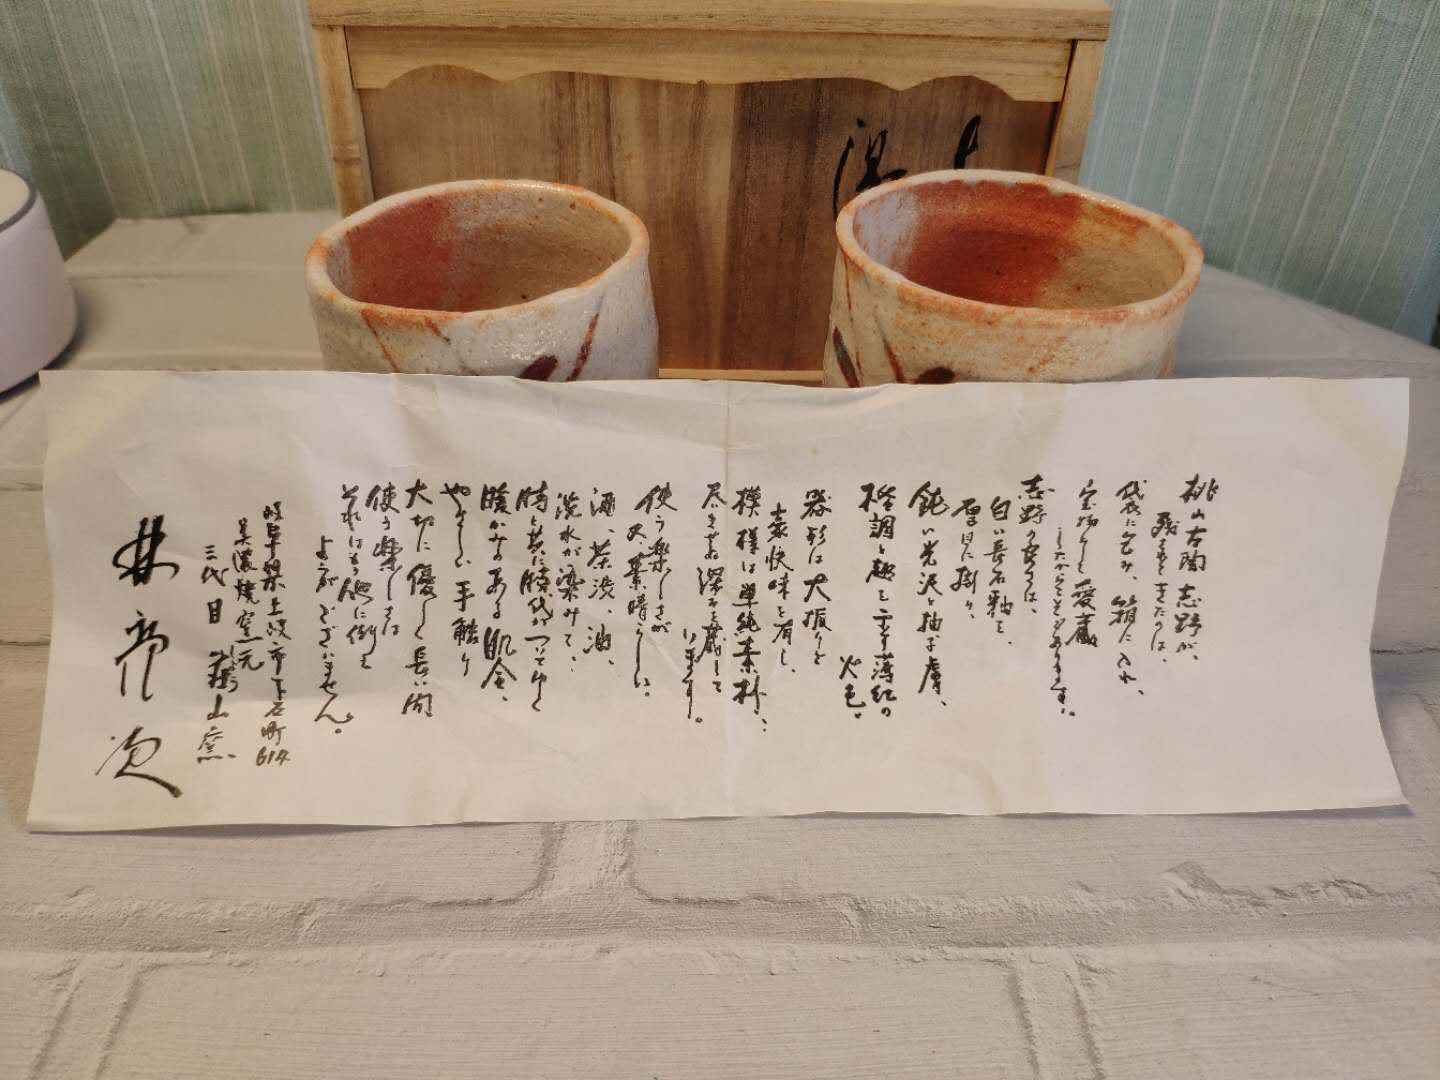 桃山古陶 志野が、
残ってきたのは、
袋に包み、箱に入れ、
宝物として愛蔵
したからこそであります。
志野の良さは、
白い長石釉を、
厚目に掛け、
鈍い光沢と柚子膚、
格調と趣を示す薄紅の
火色。
器形は大振りで
豪快味を有し、
模様は単純素朴、
尽きせぬ深みを蔵して
います。
使う楽しさが
又、素晴らしい。
酒、茶渋、油、
洗水が染みて、
時と共に時代がついてゆく
暖かみのある肌合、
やさしい手触り
大切に優しく長い間
使う楽しさは
それはもう他に例え
ようがございません。
岐阜県土岐市下石町614
美濃焼窯元
三代目 荘山窯
しょうざん
林 亮次
湯